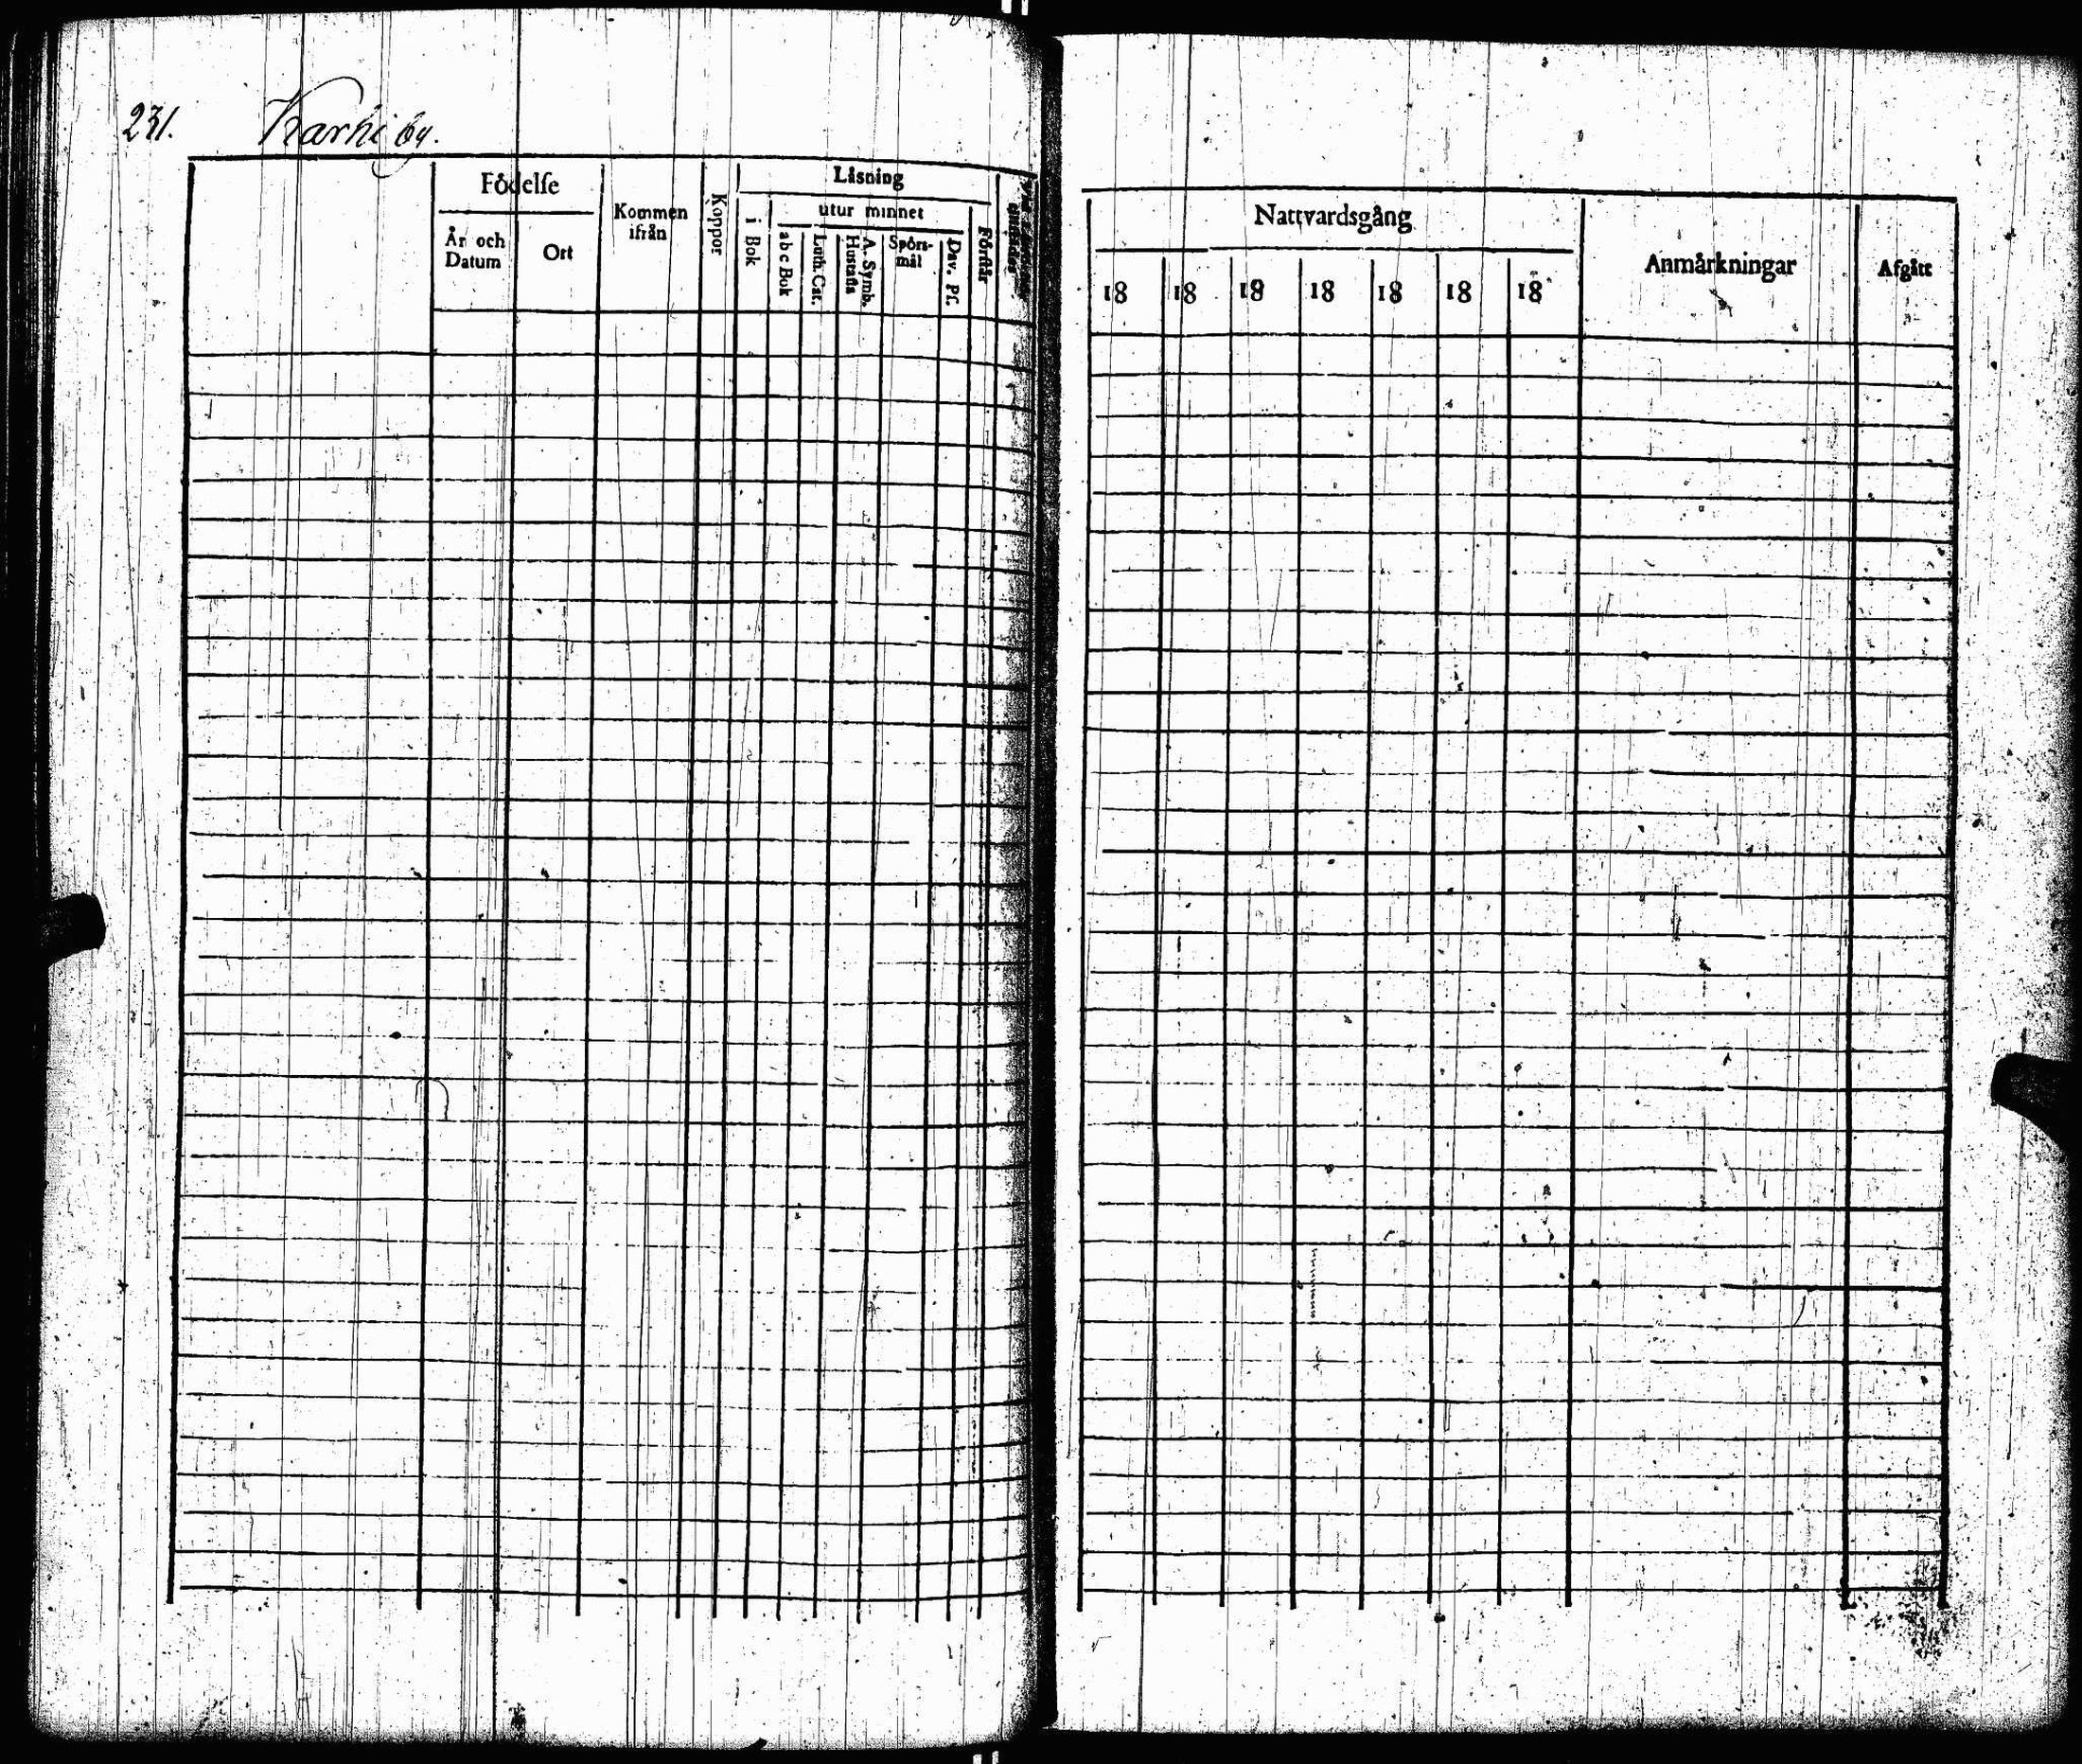 231. Karhi by.
Födelse
År och Datum
Ort
Kommen ifrån
Koppor
Läsning
i Bok
utur minnet
a b c Bok
Luth. Cat.
Hustafla
A. Symb.
Spörs-mål
Dav. Ps.
Förstår
Nattvardsgång
18 18 18 18 18 18 18
Anmärkningar
Afgått